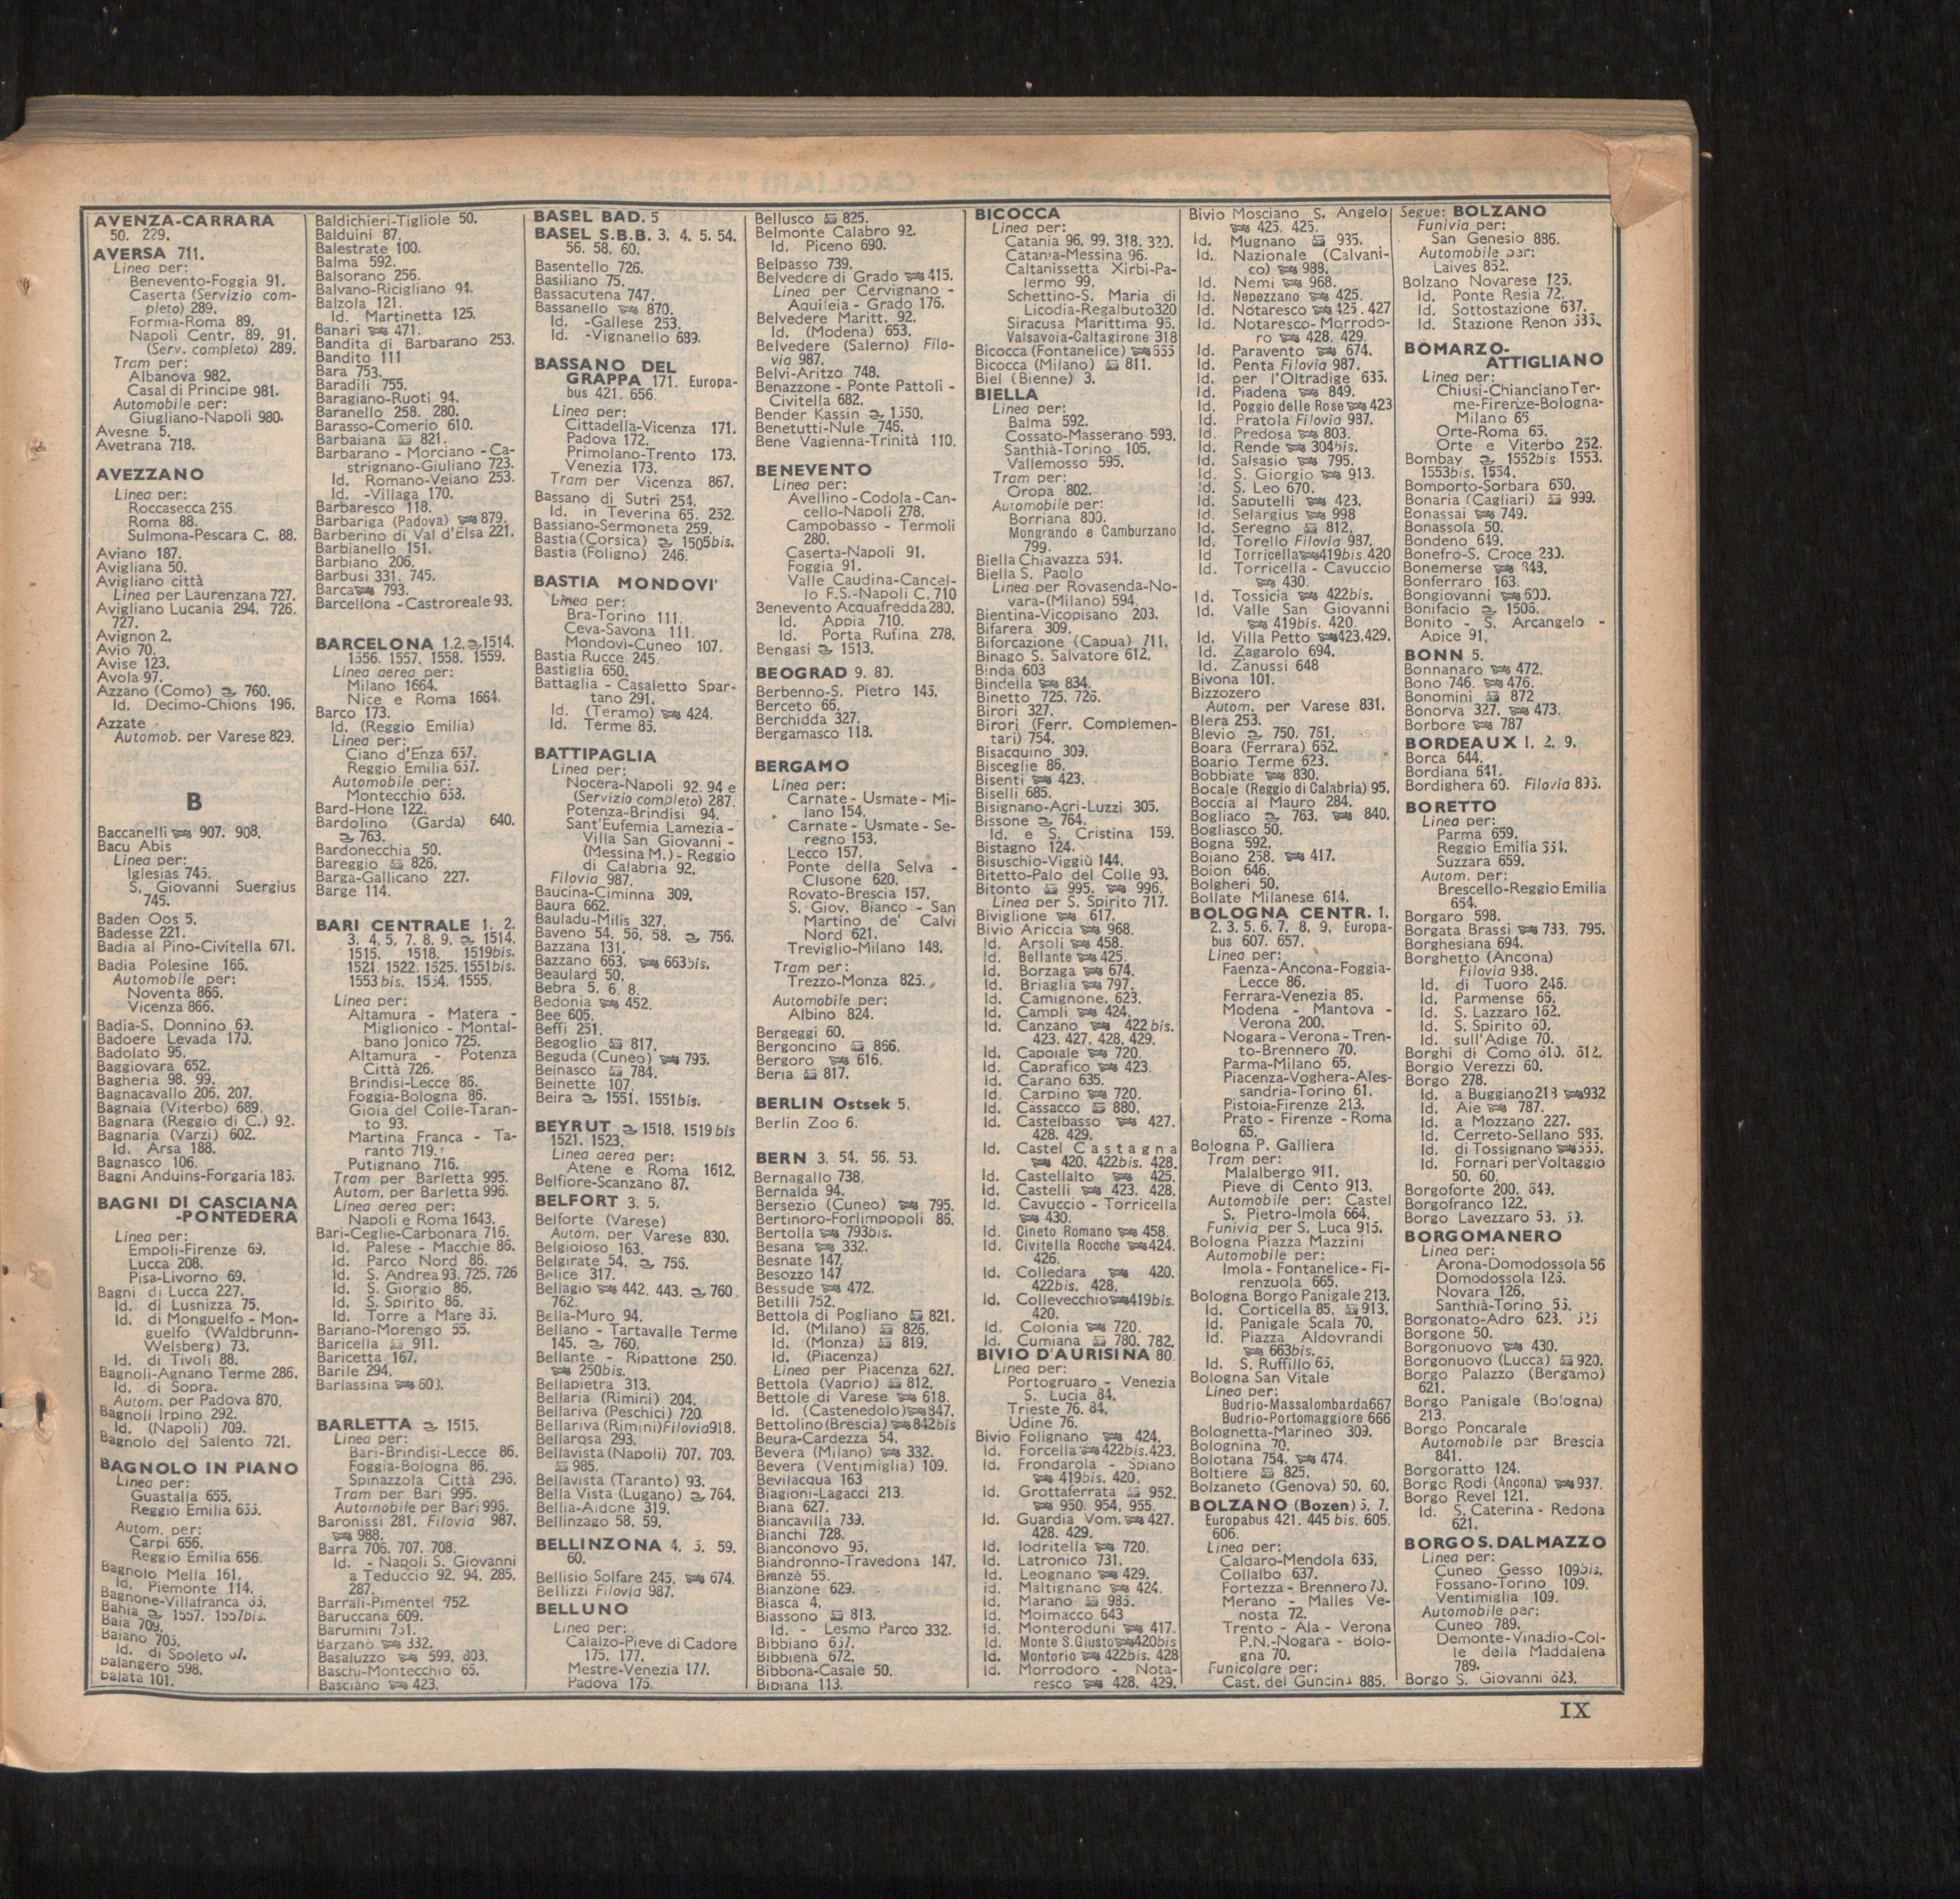 AVENZA-CARRARA
50. 229.
AVERSA 711.
Linea per:
Benevento-Foggia 91.
Caserta (Servizio com-
pleto) 289.
Formia-Roma 89.
Napoli Centr. 89. 91.
(Serv. completo) 289.
Tram per:
Albanova 982.
Casal di Principe 981.
Automobile per:
Giugliano-Napoli 980.
Avesne 5.
Avetrana 718.
AVEZZANO
Linea per:
Roccasecca 255.
Roma 88.
Sulmona-Pescara C. 88.
Aviano 187.
Avigliana 50.
Avigliano città
Linea per Laurenzana 727.
Avigliano Lucania 294. 726.
727.
Avignon 2.
Avio 70.
Avise 123.
Avola 97.
Azzano (Como) 760.
Id. Decimo-Chions 196.
Azzate
Automob. per Varese 829.
B
Baccanelli 907. 908.
Bacu Abis
Linea per:
Iglesias 745.
S. Giovanni Suergius
745.
Baden Oos 5.
Badesse 221.
Badia al Pino-Civitella 671.
Badia Polesine 166.
Automobile per:
Noventa 866.
Vicenza 866.
Badia-S. Donnino 69.
Badoere Levada 170.
Badolato 95.
Baggiovara 652.
Bagheria 98. 99.
Bagnacavallo 206. 207.
Bagnaia (Viterbo) 689.
Bagnara (Reggio di C.) 92.
Bagnaria (Varzi) 602.
Id. Arsa 188.
Bagnasco 106.
Bagni Anduins-Forgaria 185.
BAGNI DI CASCIANA
-PONTEDERA
Linea per:
Empoli-Firenze 69.
Lucca 208.
Pisa-Livorno 69.
Bagni di Lucca 227.
Id. di Lusnizza 75.
Id. di Monguelfo - Mon-
guelfo (Waldbrunn-
Welsberg) 73.
Id. di Tivoli 88.
Bagnoli-Agnano Terme 286.
Id. di Sopra.
Autom. per Padova 870.
Bagnoli Irpino 292.
Id. (Napoli) 709.
Bagnolo del Salento 721.
BAGNOLO IN PIANO
Linea per:
Guastalla 655.
Reggio Emilia 655.
Autom. per:
Carpi 656.
Reggio Emilia 656.
Bagnolo Mella 161.
Id. Piemonte 114.
Bagnone-Villafranca 66.
Bahia 1557. 1557bis.
Baia 709.
Baiano 705.
Id. di Spoleto
Balangero 598.
Balata 101.
Baldichieri-Tigliole 50.
Balduini 87.
Balestrate 100.
Balma 592.
Balsorano 256.
Balvano-Ricigliano 94.
Balzola 121.
Id. Martinetta 125.
Banari 471.
Bandita di Barbarano 253.
Bandito 111
Bara 753.
Baradili 755.
Baragiano-Ruoti 94.
Baranello 258. 280.
Barasso-Comerio 610.
Barbaiana 821.
Barbarano - Morciano - Ca-
strignano-Giuliano 723.
Id. Romano-Veiano 253.
Id. -Villaga 170.
Barbaresco 118.
Barbariga (Padova) 879.
Barberino di Val d'Elsa 221.
Barbianello 151.
Barbiano 206.
Barbusi 331. 745.
Barca 793.
Barcellona - Castroreale 93.
BARCELONA 1.2. 1514.
1556. 1557. 1558. 1559.
Linea aerea per:
Milano 1664.
Nice e Roma 1664.
Barco 173.
Id. (Reggio Emilia)
Linea per:
Ciano d'Enza 657.
Reggio Emilia 657.
Automobile per:
Montecchio 658.
Bard-Hone 122.
Bardolino (Garda) 640.
763.
Bardonecchia 50.
Bareggio 826.
Barga-Gallicano 227.
Barge 114.
BARI CENTRALE 1. 2.
3. 4. 5. 7. 8. 9. 1514.
1515. 1518. 1519bis.
1521. 1522. 1525. 1551bis.
1553 bis. 1554. 1555.
Linea per:
Altamura - Matera -
Miglionico - Montal-
bano Jonico 725.
Altamura - Potenza
Città 726.
Brindisi-Lecce 86.
Foggia-Bologna 86.
Gioia del Colle-Taran-
to 93.
Martina Franca - Ta-
ranto 719.
Putignano 716.
Tram per Barletta 995.
Autom. per Barletta 996.
Linea aerea per:
Napoli e Roma 1643.
Bari-Ceglie-Carbonara 716.
Id. Palese - Macchie 86.
Id. Parco Nord 86.
Id. S. Andrea 93. 725. 726
Id. S. Giorgio 86.
Id. S. Spirito 86.
Id. Torre a Mare 86.
Bariano-Morengo 55.
Baricella 911.
Baricetta 167.
Barile 294.
Barlassina 603.
BARLETTA 1515.
Linea per:
Bari-Brindisi-Lecce 86.
Foggia-Bologna 86.
Spinazzola Città 296.
Tram per Bari 995.
Automobile per Bari 996.
Baronissi 281. Filovia 987.
988.
Barra 706. 707. 708.
Id. - Napoli S. Giovanni
a Teduccio 92. 94. 285.
287.
Barrali-Pimentel 752.
Baruccana 609.
Barumini 751.
Barzanò 332.
Basaluzzo 599. 803.
Baschi-Montecchio 65.
Basciano 423.
BASEL BAD. 5
BASEL S.B.B. 3. 4. 5. 54.
56. 58. 60.
Basentello 726.
Basiliano 75.
Bassacutena 747.
Bassanello 870.
Id. -Gallese 253.
Id. -Vignanello 689.
BASSANO DEL
GRAPPA 171. Europa-
bus 421. 656.
Linea per:
Cittadella-Vicenza 171.
Padova 172.
Primolano-Trento 173.
Venezia 173.
Tram per Vicenza 867.
Bassano di Sutri 254.
Id. in Teverina 65. 252.
Bassiano-Sermoneta 259.
Bastia (Corsica) 1505bis.
Bastia (Foligno) 246.
BASTIA MONDOVI'
Linea per:
Bra-Torino 111.
Ceva-Savona 111.
Mondovi-Cuneo 107.
Bastia Rucce 245.
Bastiglia 650.
Battaglia - Casaletto Spar-
tano 291.
Id. (Teramo) 424.
Id. Terme 85.
BATTIPAGLIA
Linea per:
Nocera-Napoli 92. 94 e
(Servizio completo) 287.
Potenza-Brindisi 94.
Sant'Eufemia Lamezia -
Villa San Giovanni -
(Messina M.) - Reggio
di Calabria 92.
Filovia 987.
Baucina-Ciminna 309.
Baura 662.
Bauladu-Milis 327.
Baveno 54. 56. 58. 756.
Bazzana 131.
Bazzano 663. 663bis.
Beaulard 50.
Bebra 5. 6. 8.
Bedonia 452.
Bee 605.
Beffi 251.
Begoglio 817.
Beguda (Cuneo) 795.
Beinasco 784.
Beinette 107.
Beira 1551. 1551bis.
BEYRUT 1518. 1519 bis
1521. 1523.
Linea aerea per:
Atene e Roma 1612.
Belfiore-Scanzano 87.
BELFORT 3. 5.
Belforte (Varese)
Autom. per Varese 830.
Belgioioso 163.
Belgirate 54. 756.
Belice 317.
Bellagio 442. 443. 760.
762.
Bella-Muro 94.
Bellano - Tartavalle Terme
145. 760.
Bellante - Ripattone 250.
250bis.
Bellapietra 313.
Bellaria (Rimini) 204.
Bellariva (Peschici) 720
Bellariva (Rimini) Filovia 918.
Bellarosa 293.
Bellavista (Napoli) 707. 708.
985.
Bellavista (Taranto) 93.
Bella Vista (Lugano) 764.
Bellia-Aidone 319.
Bellinzago 58. 59.
BELLINZONA 4. 5. 59.
60.
Bellisio Solfare 245. 674.
Bellizzi Filovia 987.
BELLUNO
Linea per:
Calalzo-Pieve di Cadore
175. 177.
Mestre-Venezia 177.
Padova 175.
Bellusco 825.
Belmonte Calabro 92.
Id. Piceno 690.
Belpasso 739.
Belvedere di Grado 415.
Linea per Cervignano -
Aquileia - Grado 176.
Belvedere Maritt. 92.
Id. (Modena) 653.
Belvedere (Salerno) Filo-
via 987.
Belvi-Aritzo 748.
Benazzone - Ponte Pattoli -
Civitella 682.
Bender Kassin 1550.
Benetutti-Nule 746.
Bene Vagienna-Trinità 110.
BENEVENTO
Linea per:
Avellino - Codola - Can-
cello-Napoli 278.
Campobasso - Termoli
280.
Caserta-Napoli 91.
Foggia 91.
Valle Caudina-Cancel-
lo F.S.-Napoli C. 710
Benevento Acquafredda 280.
Id. Appia 710.
Id. Porta Rufina 278.
Bengasi 1513.
BEOGRAD 9. 80.
Berbenno-S. Pietro 145.
Berceto 66.
Berchidda 327.
Bergamasco 118.
BERGAMO
Linea per:
Carnate - Usmate - Mi-
lano 154.
Carnate - Usmate - Se-
regno 153.
Lecco 157.
Ponte della Selva -
Clusone 620.
Rovato-Brescia 157.
S. Giov. Bianco - San
Martino de' Calvi
Nord 621.
Treviglio-Milano 148.
Tram per:
Trezzo-Monza 825.
Automobile per:
Albino 824.
Bergeggi 60.
Bergoncino 856.
Bergoro 616.
Beria 817.
BERLIN Ostsek 5.
Berlin Zoo 6.
BERN 3. 54. 56. 58.
Bernagallo 738.
Bernalda 94.
Bersezio (Cuneo) 795.
Bertinoro-Forlimpopoli 86.
Bertolla 793bis.
Besana 332.
Besnate 147.
Besozzo 147
Bessude 472.
Betilli 752.
Bettola di Pogliano 821.
Id. (Milano) 826.
Id. (Monza) 819.
Id. (Piacenza)
Linea per Piacenza 627.
Bettola (Vaprio) 812.
Bettole di Varese 618.
Id. (Castenedolo) 847.
Bettolino (Brescia) 842bis
Beura-Cardezza 54.
Bevera (Milano) 332.
Bevera (Ventimiglia) 109.
Bevilacqua 163
Biagioni-Lagacci 213.
Biana 627.
Biancavilla 739.
Bianchi 728.
Bianconovo 95.
Biandronno-Travedona 147.
Bianzè 55.
Bianzone 629.
Biasca 4.
Biassono 813.
Id. - Lesmo Parco 332.
Bibbiano 657.
Bibbiena 672.
Bibbona-Casale 50.
Bibiana 113.
BICOCCA
Linea per:
Catania 96. 99. 318. 320.
Catania-Messina 96.
Caltanissetta Xirbi-Pa-
lermo 99.
Schettino-S. Maria di
Licodia-Regalbuto 320
Siracusa Marittima 96.
Valsavoia-Caltagirone 318
Bicocca (Fontanelice) 655
Bicocca (Milano) 811.
Biel (Bienne) 3.
BIELLA
Linea per:
Balma 592.
Cossato-Masserano 593.
Santhià-Torino 105.
Vallemosso 595.
Tram per:
Oropa 802.
Automobile per:
Borriana 800.
Mongrando e Camburzano
799.
Biella Chiavazza 594.
Biella S. Paolo
Linea per Rovasenda-No-
vara-(Milano) 594.
Bientina-Vicopisano 203.
Bifarera 309.
Biforcazione (Capua) 711.
Binago S. Salvatore 612.
Binda 603
Bindella 834.
Binetto 725. 726.
Birori 327.
Birori (Ferr. Complemen-
tari) 754.
Bisacquino 309.
Bisceglie 86.
Bisenti 423.
Biselli 685.
Bisignano-Acri-Luzzi 305.
Bissone 764.
Id. e S. Cristina 159.
Bistagno 124.
Bisuschio-Viggiù 144.
Bitetto-Palo del Colle 93.
Bitonto 995. 996.
Linea per S. Spirito 717.
Biviglione 617.
Bivio Ariccia 968.
Id. Arsoli 458.
Id. Bellante 425.
Id. Borzaga 674.
Id. Briaglia 797.
Id. Camignone. 623.
Id. Campli 424.
Id. Canzano 422 bis.
423. 427. 428. 429.
Id. Capoiale 720.
Id. Caprafico 423.
Id. Carano 635.
Id. Carpino 720.
Id. Cassacco 880.
Id. Castelbasso 427.
428. 429.
Id. Castel Castagna
420. 422bis. 428.
Id. Castellalto 425.
Id. Castelli 423. 428.
Id. Cavuccio - Torricella
430.
Id. Cineto Romano 458.
Id. Civitella Rocche 424.
426.
Id. Colledara 420.
422bis. 428.
Id. Collevecchio 419bis.
420.
Id. Colonia 720.
Id. Cumiana 780. 782.
BIVIO D'AURISINA 80.
Linea per:
Portogruaro - Venezia
S. Lucia 84.
Trieste 76. 84.
Udine 76.
Bivio Folignano 424.
Id. Forcella 422bis. 423.
Id. Frondarola - Spiano
419bis. 420.
Id. Grottaferrata 952.
950. 954. 955.
Id. Guardia Vom. 427.
428. 429.
Id. Iodritella 720.
Id. Latronico 731.
Id. Leognano 429.
Id. Maltignano 424.
Id. Marano 985.
Id. Moimacco 643
Id. Monteroduni 417.
Id. Monte S. Giusto 420bis
Id. Montorio 422bis. 428
Id. Morrodoro - Nota-
resco 428. 429.
Bivio Mosciano S. Angelo
425. 425.
Id. Mugnano 935.
Id. Nazionale (Calvani-
co) 989.
Id. Nemi 968.
Id. Nepezzano 425.
Id. Notaresco 425. 427
Id. Notaresco - Morrodo-
ro 428. 429.
Id. Paravento 674.
Id. Penta Filovia 987.
Id. per l'Oltradige 635.
Id. Piadena 849.
Id. Poggio delle Rose 423
Id. Pratola Filovia 987.
Id. Predosa 803.
Id. Rende 304bis.
Id. Salsasio 795.
Id. S. Giorgio 913.
Id. S. Leo 670.
Id. Saputelli 423.
Id. Selargius 998
Id. Seregno 812.
Id. Torello Filovia 987.
Id Torricella 419bis. 420
Id. Torricella - Cavuccio
430.
Id. Tossicia 422bis.
Id. Valle San Giovanni
419bis. 420.
Id. Villa Petto 423. 429.
Id. Zagarolo 694.
Id. Zanussi 648
Bivona 101.
Bizzozero
Autom. per Varese 831.
Blera 253.
Blevio 750. 761.
Boara (Ferrara) 662.
Boario Terme 623.
Bobbiate 830.
Bocale (Reggio di Calabria) 95.
Boccia al Mauro 284.
Bogliaco 763. 840.
Bogliasco 50.
Bogna 592.
Boiano 258. 417.
Boion 646.
Bolgheri 50.
Bollate Milanese 614.
BOLOGNA CENTR. 1.
2. 3. 5. 6. 7. 8. 9. Europa-
bus 607. 657.
Linea per:
Faenza-Ancona-Foggia-
Lecce 86.
Ferrara-Venezia 85.
Modena - Mantova -
Verona 200.
Nogara - Verona - Tren-
to-Brennero 70.
Parma-Milano 65.
Piacenza-Voghera-Ales-
sandria-Torino 61.
Pistoia-Firenze 213.
Prato - Firenze - Roma
65.
Bologna P. Galliera
Tram per:
Malalbergo 911.
Pieve di Cento 913.
Automobile per: Castel
S. Pietro-Imola 664.
Funivia per S. Luca 915.
Bologna Piazza Mazzini
Automobile per:
Imola - Fontanelice - Fi-
renzuola 665.
Bologna Borgo Panigale 213.
Id. Corticella 85. 913.
Id. Panigale Scala 70.
Id. Piazza Aldovrandi
663bis.
Id. S. Ruffillo 65.
Bologna San Vitale
Linea per:
Budrio-Massalombarda 667
Budrio-Portomaggiore 666
Bolognetta-Marineo 309.
Bolognina 70.
Bolotana 754. 474.
Boltiere 825.
Bolzaneto (Genova) 50. 60.
BOLZANO (Bozen) 5. 7.
Europabus 421. 445 bis. 605.
606.
Linea per:
Caldaro-Mendola 635.
Collalbo 637.
Fortezza - Brennero 70.
Merano - Malles Ve-
nosta 72.
Trento - Ala - Verona
P.N.-Nogara - Bolo-
gna 70.
Funicolare per:
Cast. del Guncina 885.
Segue: BOLZANO
Funivia per:
San Genesio 886.
Automobile per:
Laives 852.
Bolzano Novarese 125.
Id. Ponte Resia 72.
Id. Sottostazione 637.
Id. Stazione Renon
BOMARZO-
ATTIGLIANO
Linea per:
Chiusi-Chianciano Ter-
me-Firenze-Bologna-
Milano 65.
Orte-Roma 65.
Orte e Viterbo 252.
Bombay 1552bis 1553.
1553bis. 1554.
Bomporto-Sorbara 650.
Bonaria (Cagliari) 999.
Bonassai 749.
Bonassola 50.
Bondeno 649.
Bonefro-S. Croce 280.
Bonemerse 848.
Bonferraro 163.
Bongiovanni 600.
Bonifacio 1506.
Bonito - S. Arcangelo -
Apice 91.
BONN 5.
Bonnanaro 472.
Bono 746. 476.
Bonomini 872
Bonorva 327. 473.
Borbore 787
BORDEAUX 1. 2. 9.
Borca 644.
Bordiana 641.
Bordighera 60. Filovia 896.
BORETTO
Linea per:
Parma 659.
Reggio Emilia 654.
Suzzara 659.
Autom. per:
Brescello-Reggio Emilia
654.
Borgaro 598.
Borgata Brassi 733. 795.
Borghesiana 694.
Borghetto (Ancona)
Filovia 938.
Id. di Tuoro 246.
Id. Parmense 66.
Id. S. Lazzaro 162.
Id. S. Spirito 60.
Id. sull'Adige 70.
Borghi di Como 610. 612.
Borgio Verezzi 60.
Borgo 278.
Id. a Buggiano 213 932
Id. Aie 787.
Id. a Mozzano 227.
Id. Cerreto-Sellano 685.
Id. di Tossignano 665.
Id. Fornari per Voltaggio
50. 60.
Borgoforte 200. 649.
Borgofranco 122.
Borgo Lavezzaro 53. 59.
BORGOMANERO
Linea per:
Arona-Domodossola 56
Domodossola 126.
Novara 126.
Santhià-Torino 55.
Borgonato-Adro 623.
Borgone 50.
Borgonuovo 430.
Borgonuovo (Lucca) 920.
Borgo Palazzo (Bergamo)
621.
Borgo Panigale (Bologna)
213.
Borgo Poncarale
Automobile per Brescia
841.
Borgoratto 124.
Borgo Rodi (Ancona) 937.
Borgo Revel 121.
Id. S. Caterina - Redona
621.
BORGO S. DALMAZZO
Linea per:
Cuneo Gesso 109bis.
Fossano-Torino 109.
Ventimiglia 109.
Automobile per:
Cuneo 789.
Demonte-Vinadio-Col-
le della Maddalena
789.
Borgo S. Giovanni 623.
IX